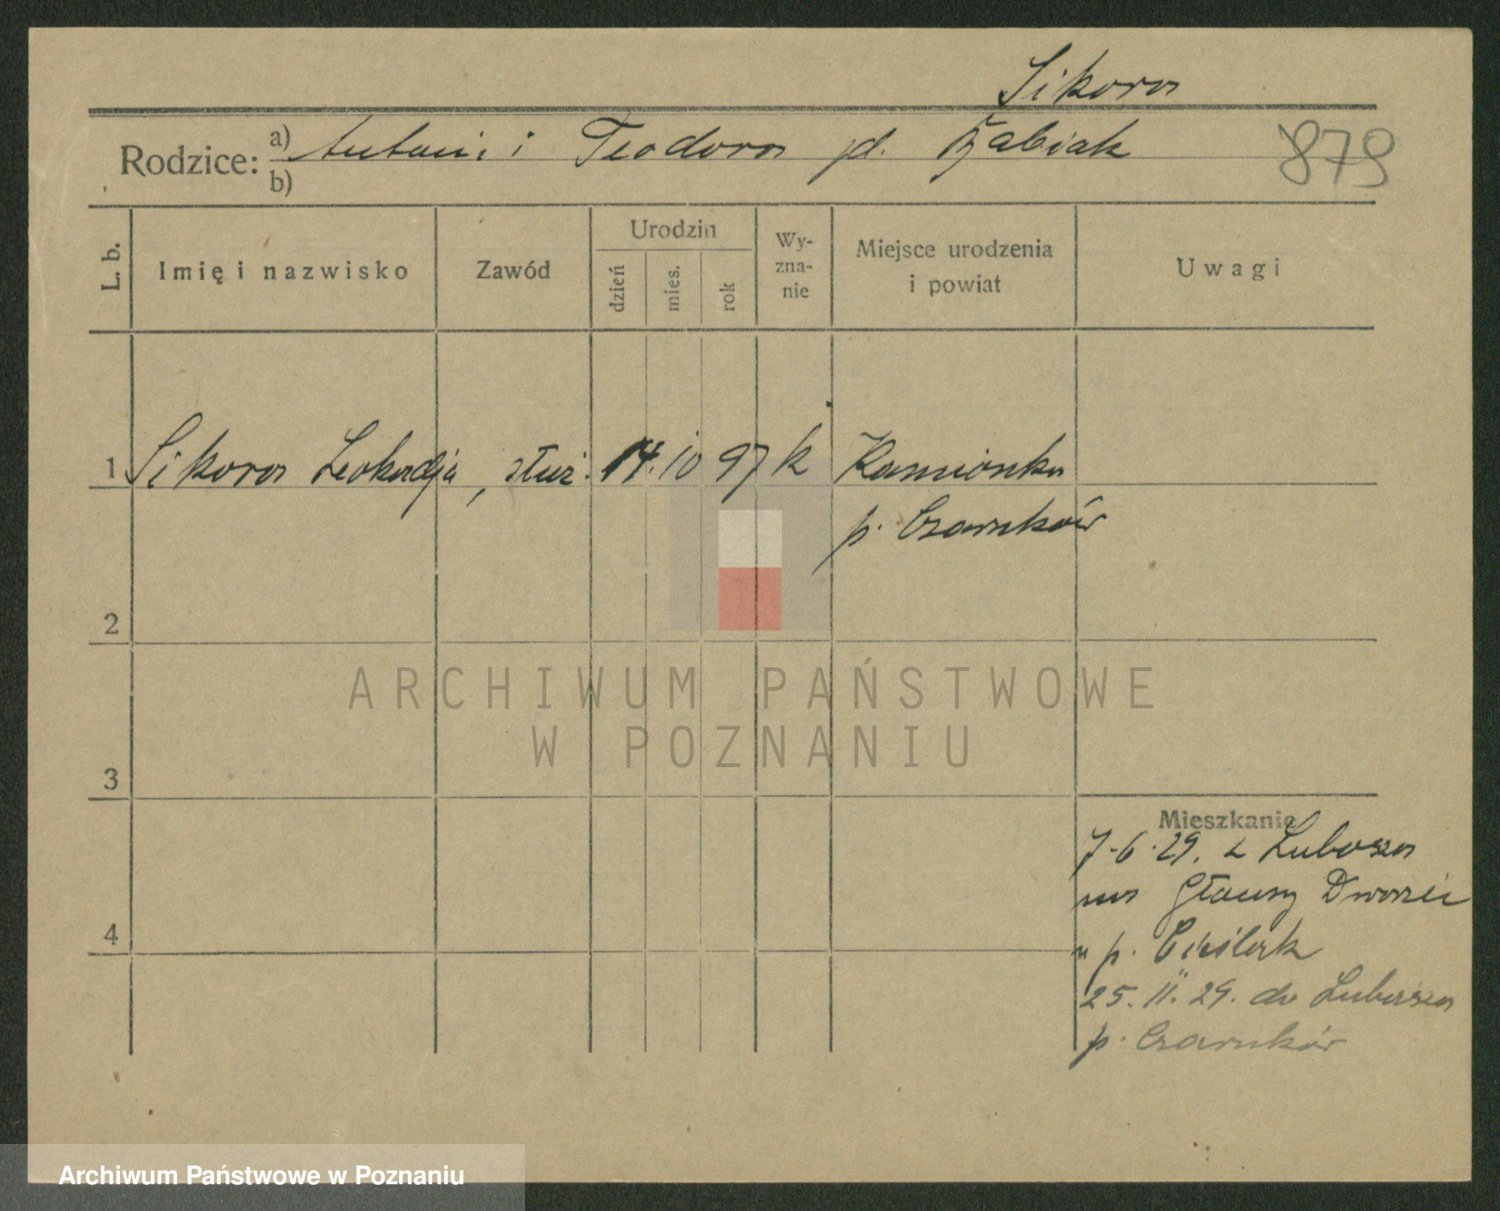 Sikora
Rodzice: a) Antoni i Teodora zd. Żabiak
b)
879
L. b.
Imię i nazwisko
Zawód
Urodzin
dzień
mies.
rok
Wy-
zna-
nie
Miejsce urodzenia
i powiat
Uwagi
1 Sikora Leokadja, służ. 14. 10 97 k Kamionka
p. Czarnków
2
3
4
Mieszkanie
7.6.29. z Lubosza
na Główny Dworzec
u p.
25.II.29. do Lubosza
p. Czarnków
ARCHIWUM PAŃSTWOWE
W POZNANIU
Archiwum Państwowe w Poznaniu